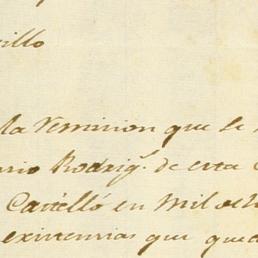 illo
la Remision que se
rio Rodrig.^ de esta
Castelló en mil och
existencias que qued